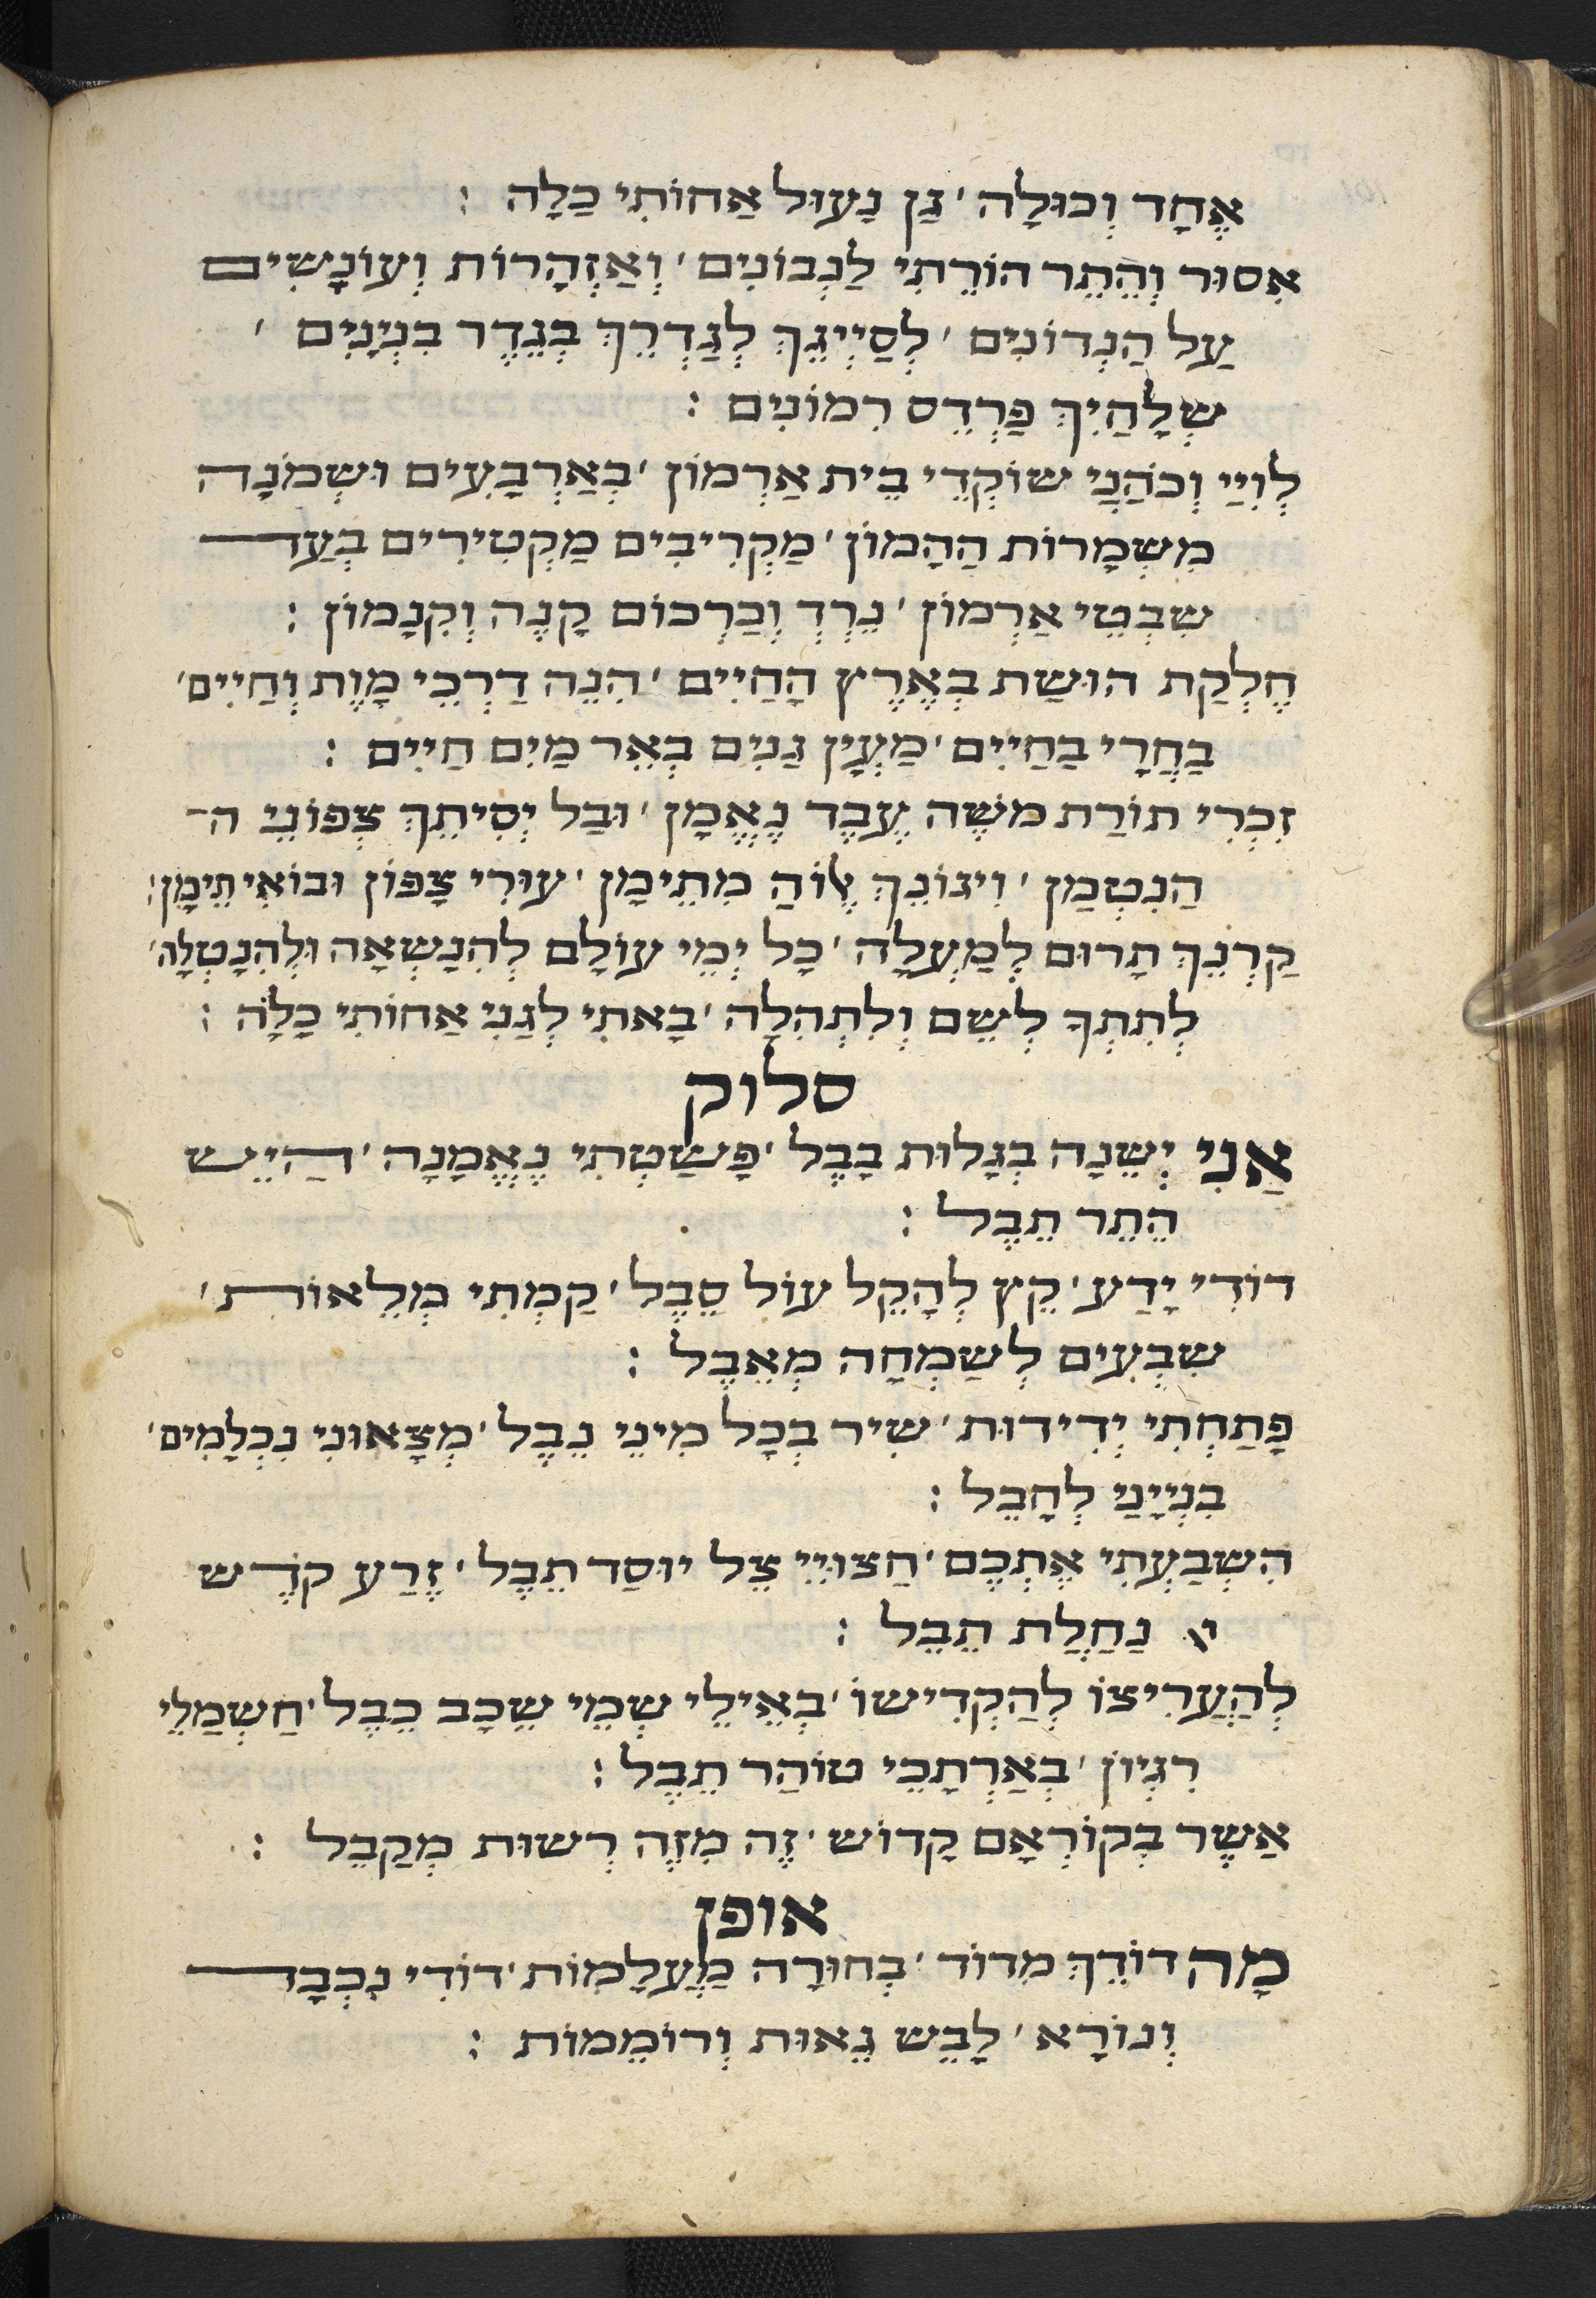 אֶחָד וְכוּלָה ׳ גַן נָעוּל אַחוֹתִי כַלָה :
אִסוּר וְהֶתֵר הוֹרֵתִי לַנְבוֹנִים ׳ וְאַזְהָרוֹת וְעוֹנָשִים
עַל הַנְדוֹנִים ׳ לְסַיְיגֵךְ לְגַדְרֵךְ בְגֶדֶר בִנְיָנִים ׳
שְלָחַיִךְ פַרְדֵס רִמוֹנִים :
לְוִיַי וְכֹהֲנַי שוֹקְדֵי בֵית אַרְמוֹן ׳ בְאַרְבָעִים וּשְמֹנָה
מִשְמָרוֹת הַהָמוֹן ׳ מַקְרִיבִים מַקְטִירִים בְעַד
שִבְטֵי אַרְמוֹן ׳ נֵרְדְ וְכַרְכוֹם קָנֶה וְקִנָמוֹן :
חֶלְקַת הוּשַת בְאֶרֶץ הָחַיִים ׳ הִנֵה דַרְכֵי מָוֶת וְחַיִים ׳
בַחֲרָי בַחַיִים ׳ מַעְיָן גַנִים בְאֵר מַיִם חַיִים :
זִכְרִי תוֹרַת מֹשֶה עֶבֶד נֶאֱמָן ׳ וּבַל יְסִיתֵךְ צְפוֹנִי ה־
הַנִטְמַן ׳ וִיגוֹנֵךְ אֱלוֹהַ מִתֵימָן ׳ עוּרִי צָפוֹן וּבוֹאִי תֵימָן :
קַרְנֵךְ תָרוּם לְמַעְלָה ׳ כָל יְמֵי עוֹלָם לְהִנָשְאָה וּלְהִנָטְלָה ׳
לְתִתְךְ לְשֵם וְלִתְהִלָה ׳ בָאתִי לְגַנִי אַחוֹתִי כַלָה :
סלוק
אֲנִי יְשֵנָה בְגָלוּת בָבֶל ׳ פָשַטְתִי נֶאֱמָנָה ׳ הַיֵש
הֵתֵר תֵבֶל :
דוֹדִי יָדַע ׳ קֵץ לְהָקֵל עוֹל סֵבֶל ׳ קַמְתִי מְלֵאוֹת ׳
שִבְעִים לְשַמְחָה מְאֵבֶל :
פָתַחְתִי יְדִידוּת ׳ שִיר בְכָל מִינֵי נֵבֶל ׳ מְצָאוּנִי נִכְלָמִים ׳
בִנְיָינַי לְחָבֵל :
הִשְבַעְתִי אֶתְכֶם ׳ חַצוּיֵי צֵל יוּסַד תֵבֶל ׳ זֶרַע קֹדֶש
נַחֲלַת חֵבֶל :
לְהַעֲרִיצוֹ לְהַקְדִישוֹ ׳ בְאֵילֵי שְמֵי שֵכָב כֶבֶל ׳ חַשְמַלֵי
רִגְיוֹן ׳ בְאַרְתָכֵי טוֹהַר תֵבֶל :
אַשֶר בְקוֹרְאָם קָדוֹש ׳ זֶה מִזֶה רְשוּת מְקַבֵל :
אופן
מָה דוֹדֵךְ מִדוֹד ׳ בְחוּרָה מַעֲלָמוֹת ׳ דוֹדִי נִכְבָד
וְנוֹרָא ׳ לָבֵש גֵאוּת וְרוֹמֵמוֹת :